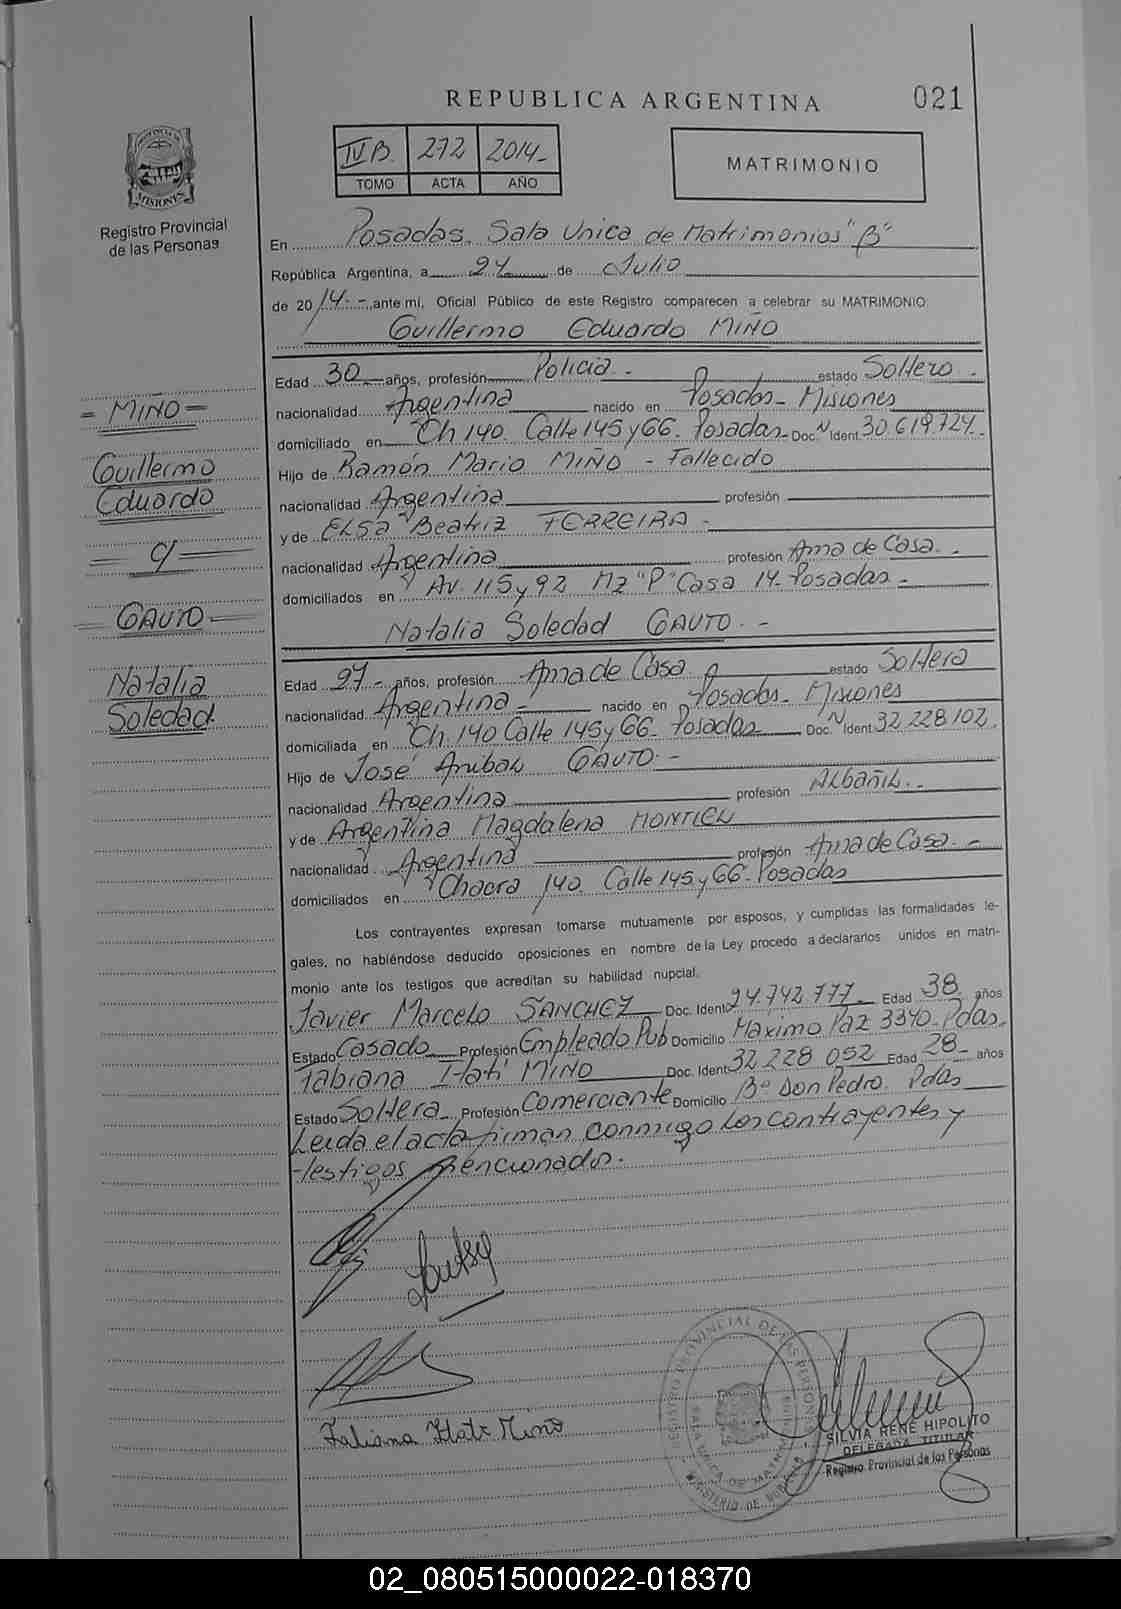 REPUBLICA ARGENTINA
021
IV B. 272 2014.-
TOMO ACTA AÑO
MATRIMONIO
PROVINCIA DE MISIONES
Registro Provincial
de las Personas
En Posadas. Sala Unica de Matrimonios "B"
República Argentina, a 24 de Julio
de 2014.- ante mí, Oficial Público de este Registro comparecen a celebrar su MATRIMONIO
Guillermo Eduardo MIÑO
Edad 30 años, profesión Policia.- estado Soltero.-
nacionalidad Argentina nacido en Posadas- Misiones
domiciliado en Ch 140. Calle 145 y 66. Posadas- Doc. N Ident. 30.619.724.-
Hijo de Ramón Mario MIÑO - Fallecido
nacionalidad Argentina profesión
y de Elsa Beatriz FERREIRA-
nacionalidad Argentina profesión Ama de Casa.-
domiciliados en Av. 115 y 92 Mz "P" Casa 14. Posadas-
Natalia Soledad GAUTO.-
Edad 27- años, profesión Ama de Casa estado Soltera
nacionalidad Argentina- nacido en Posadas- Misiones
domiciliada en Ch. 140 Calle 145 y 66. Posadas Doc. N Ident. 32.228.102.
Hijo de José Anibal GAUTO.-
nacionalidad Argentina profesión Albañil.-
y de Argentina Magdalena MONTIEL
nacionalidad Argentina profesión Ama de Casa.-
domiciliados en Chacra 140. Calle 145 y 66- Posadas
Los contrayentes expresan tomarse mutuamente por esposos, y cumplidas las formalidades le-
gales, no habiéndose deducido oposiciones en nombre de la Ley procedo a declararlos unidos en matri-
monio ante los testigos que acreditan su habilidad nupcial.
Javier Marcelo SANCHEZ Doc. Ident. 24.742.777.- Edad 38 años
Estado Casado Profesión Empleado Pub Domicilio Maximo Paz 3340. Pdas.
Fabiana Itati MIÑO Doc. Ident. 32.228.052 Edad 28- años
Estado Soltera Profesión Comerciante Domicilio Bº Don Pedro. Pdas
Leida el acta firman conmigo los contrayentes y
testigos mencionados.
= MIÑO =
Guillermo
Eduardo
= c/ =
= GAUTO =
Natalia
Soledad.
Fabiana Itati Miño
REGISTRO PROVINCIAL DE LAS PERSONAS
SALA UNICA DE MATRIMONIOS
MINISTERIO DE GOBIERNO
SILVIA RENE HIPOLITO
DELEGADA TITULAR
Registro Provincial de las Personas
02_080515000022-018370